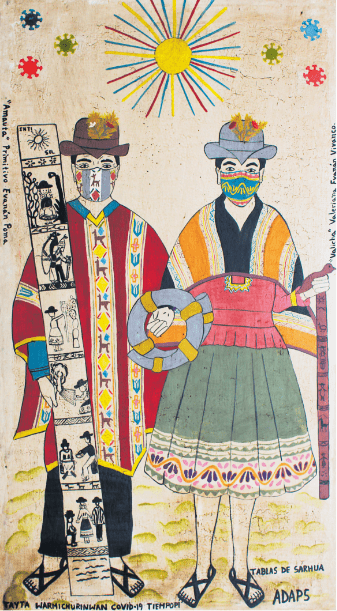 INTI
SOL
"Amauta" Primitivo Evanán Poma
Valeriana Evanán Vivanco.
TABLAS DE SARHUA
ADAPS
TAYTA WARMICHURINWAN COVID-19 TIEMPOPI